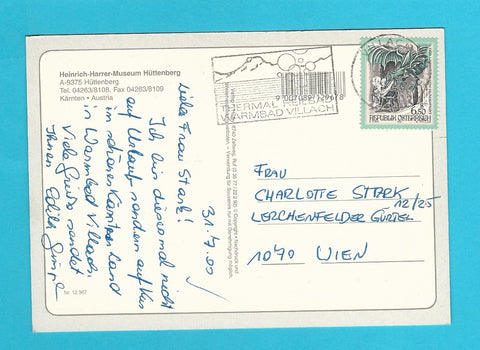 Heinrich-Harrer-Museum Hüttenberg
A-9375 Hüttenberg
Tel. 04263/8108. Fax 04263/8109
Kärnten • Austria
31.7.00
Liebe Frau Stark!
Ich bin diesesmal nicht
auf Urlaub sondern auf Kur
im schönen Kärntner Land
in Warmbad Villach.
Viele Grüße sendet
Ihnen Edith
Nr. 12.967
THERMAL
WARMBAD VILLACH
VILLACH
6.50
REPUBLIK ÖSTERREICH
FRAU
CHARLOTTE STARK
LERCHENFELDER GÜRTEL 12/25
1070 WIEN